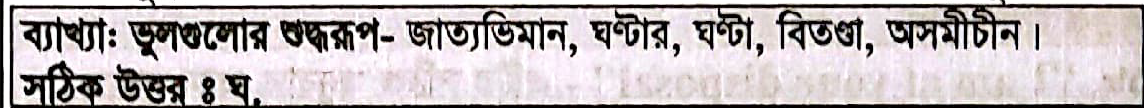 ব্যাখ্যাঃ ভুলগুলোর শুদ্ধরূপ- জাত্যভিমান, ঘণ্টার, ঘণ্টা, বিতণ্ডা, অসমীচীন।
সঠিক উত্তর ঃ ঘ.